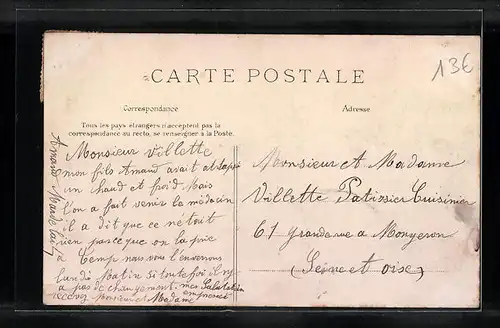 13€
CARTE POSTALE
Correspondance
Adresse
Tous les pays étrangers n'acceptent pas la
correspondance au recto, se renseigner à la Poste.
Monsieur Villette
mon fils Amand avait attrapé
un chaud et froid Mais
l'on a fait venir la médecin
il a dit que ce nétait
rien parceque on la prie
a Temp nous vous l'enverrons
lundi Matin si toute foi il ny
a pas de changement. mes Salutation
recevez Monsieur et Madame empressée
Amand
Monsieur et Madame
Villette Patissier Cuisinier
61 Grande rue a Mongeron
(Seine et oise)